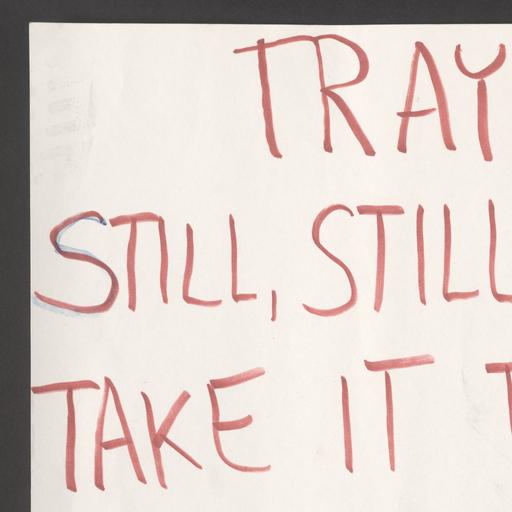 TRAY
STILL, STILL
TAKE IT T